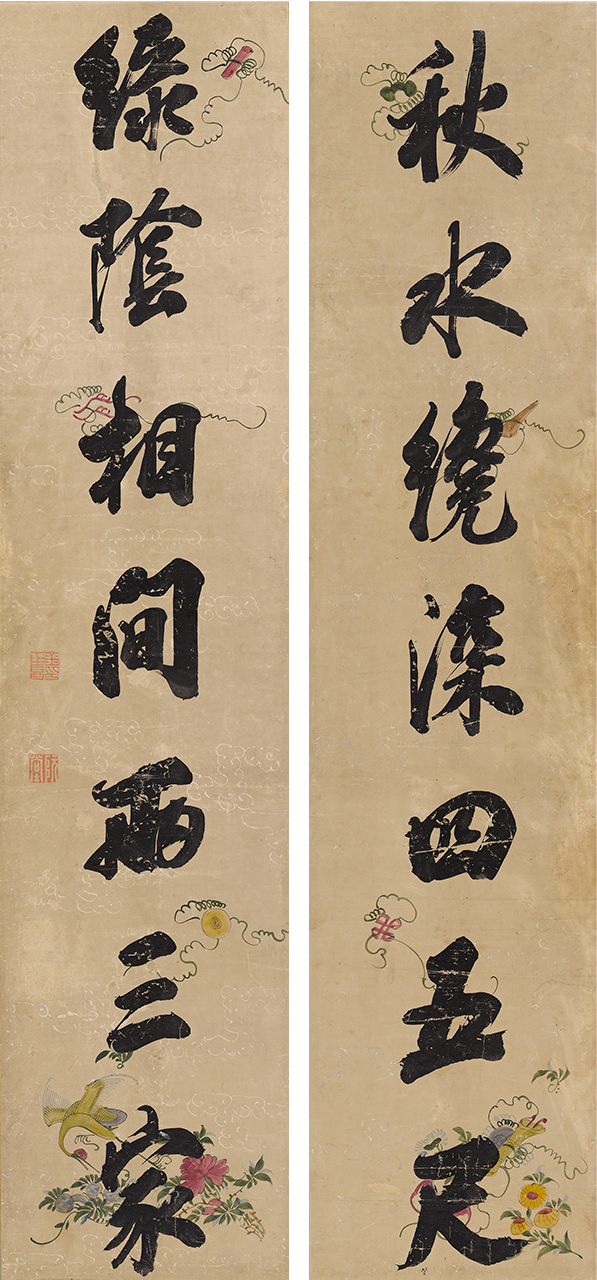 秋水纔深四五尺
綠陰相間兩三家